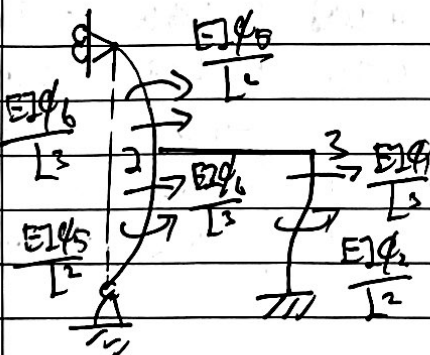 EIφ5/L²
EIφ6/L³
2
3
EIφ6/L³
EIφ1/L³
EIφ5/L²
EIφ2/L²